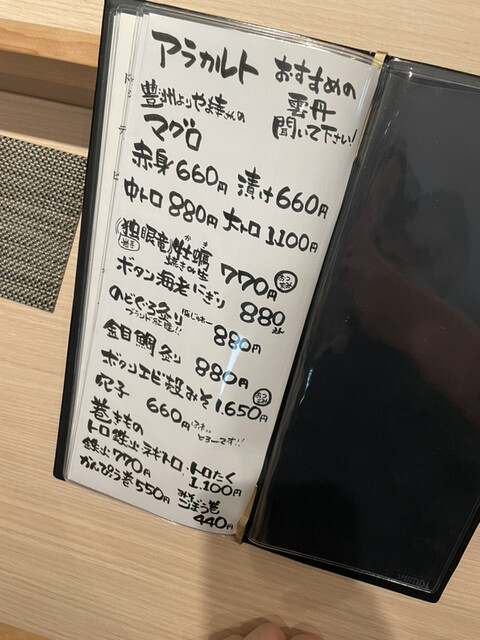 アラカルト
おすすめの
雲丹
聞いて下さい!
豊洲よりやま幸さんの
マグロ
赤身660円 漬け660円
中トロ880円 大トロ1,100円
独眼竜牡蠣
かき
焼きor生 770円
ボタン海老にぎり 880
のどぐろ炙り
880円
金目鯛炙り 880円
ボタンエビ殻みそ1,650円
穴子 660円
巻きもの
トロ鉄火 ネギトロ・トロたく
1,100円
鉄火770円
かんぴょう巻550円
ごぼう巻
440円